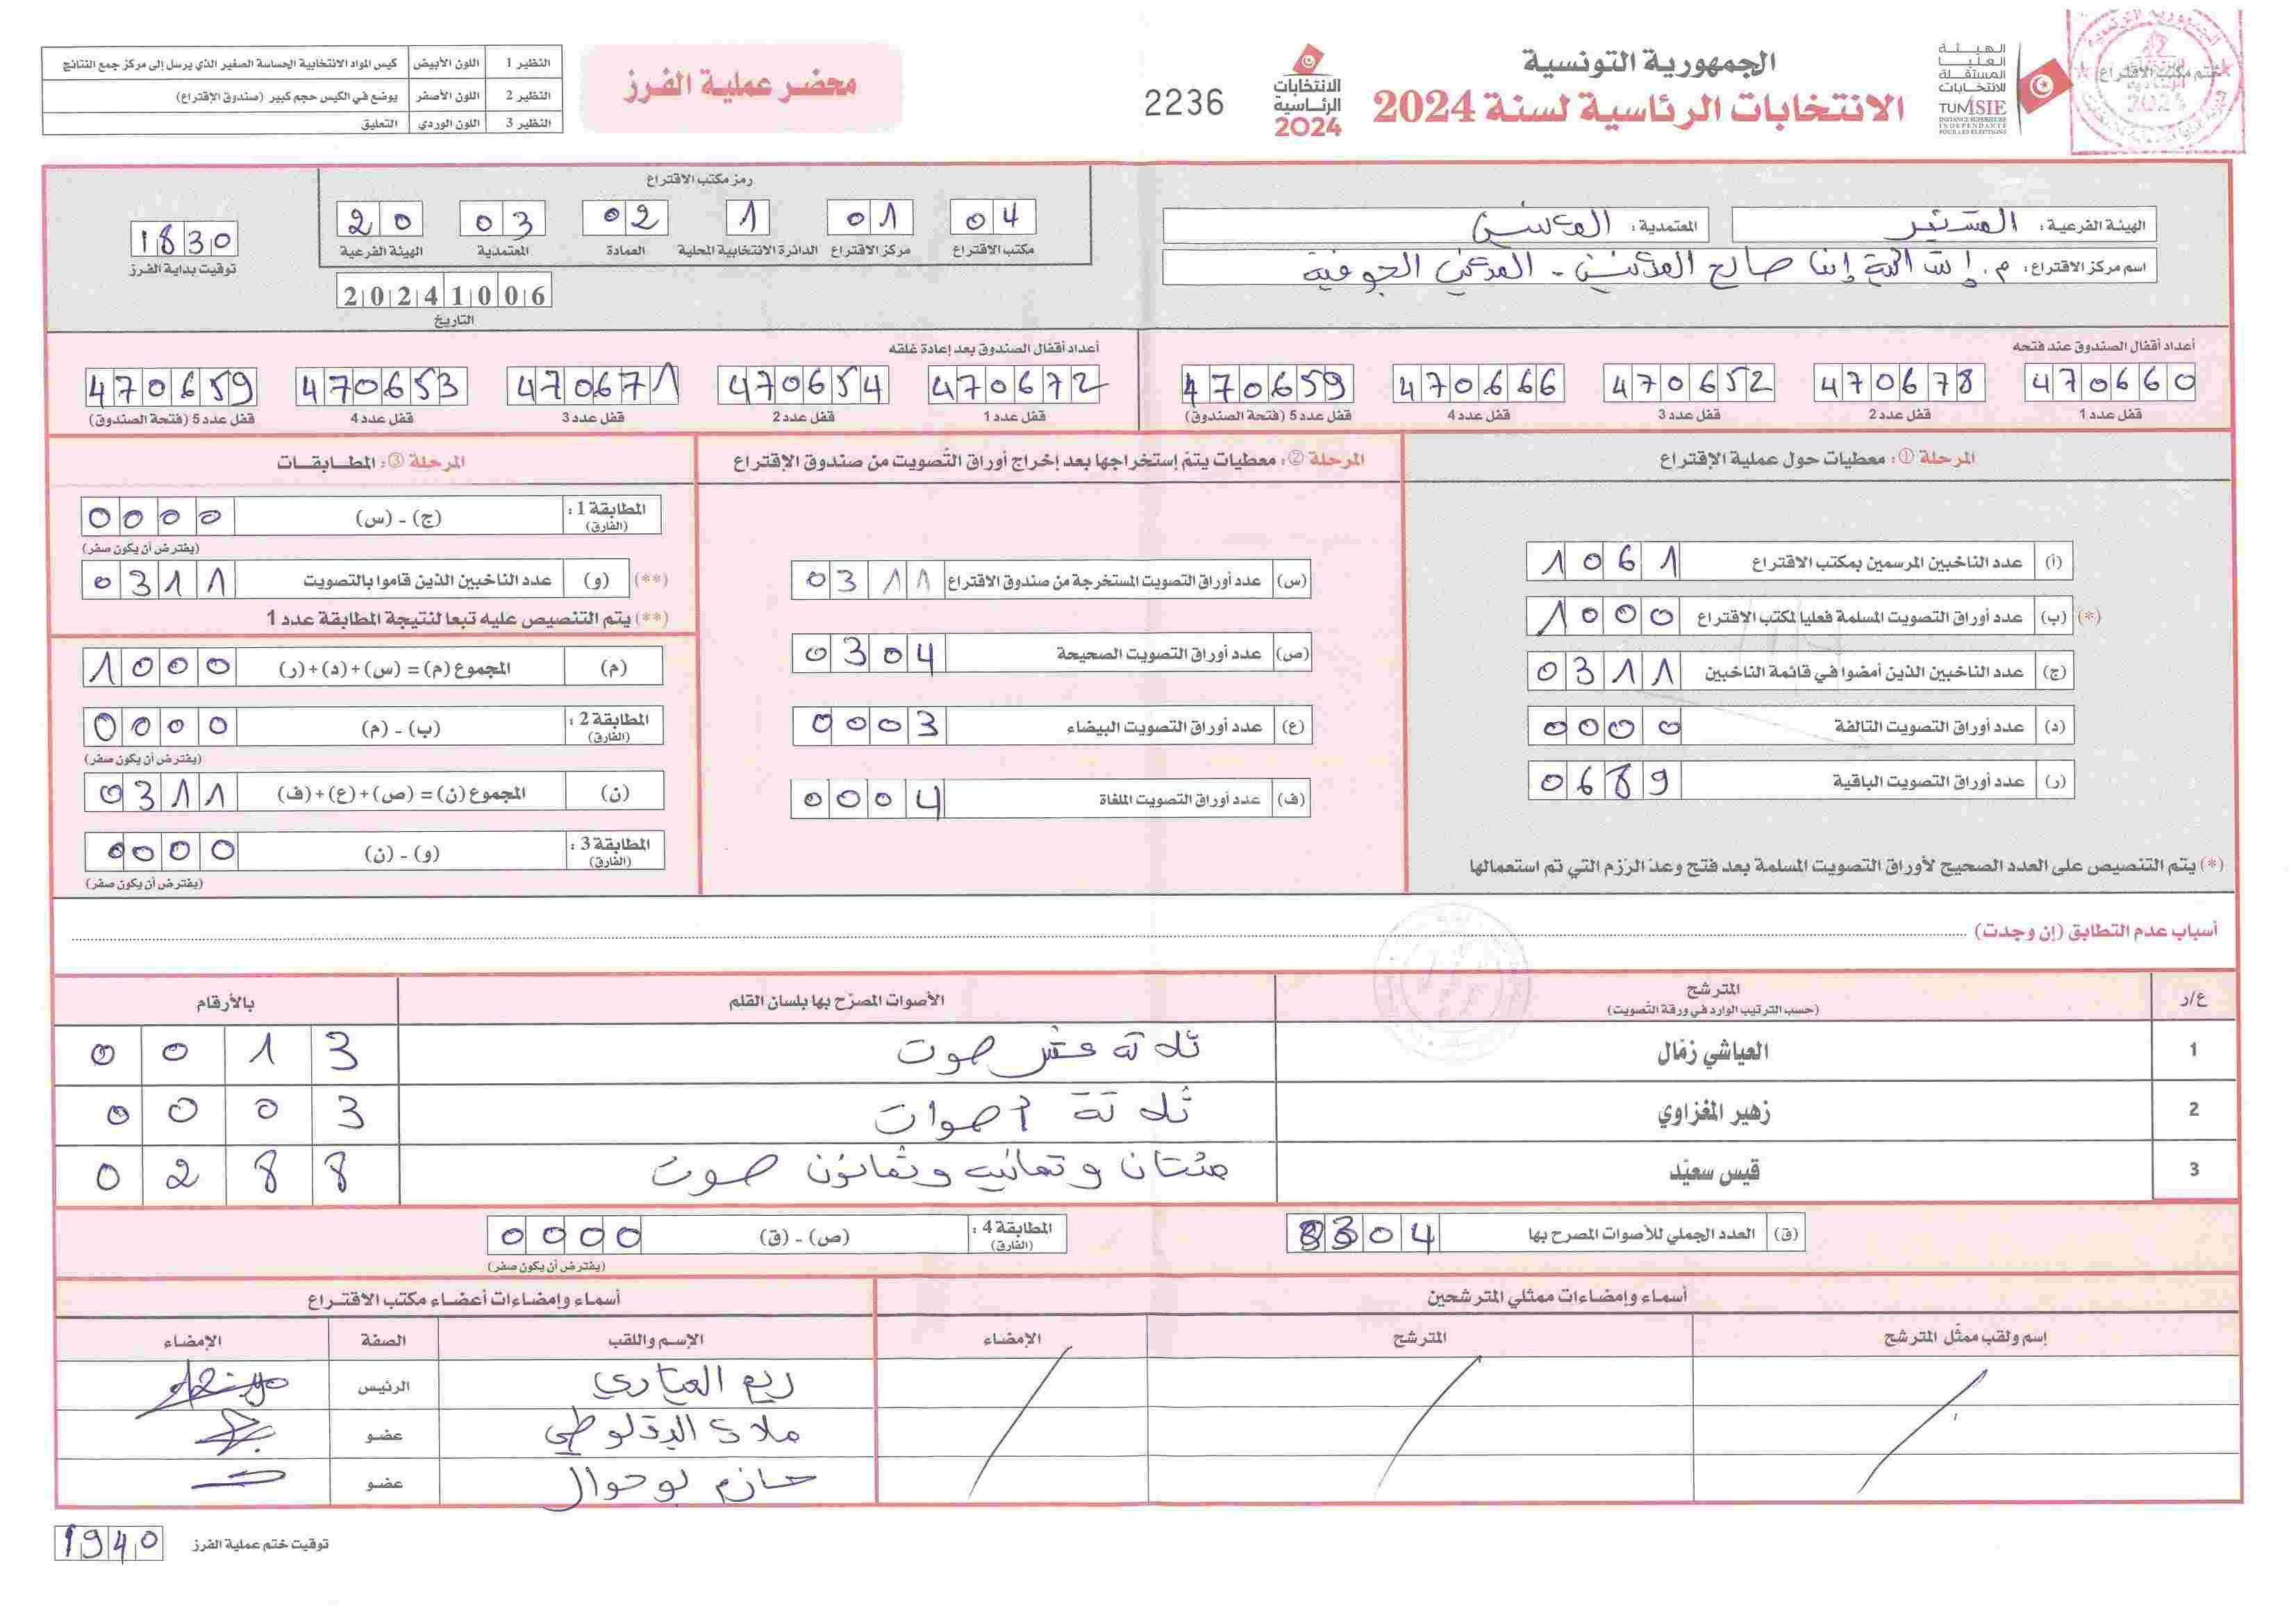 الجمهورية التونسية
الانتخابات الرئاسية لسنة 2024
الهيئة العليا المستقلة للانتخابات
TUNISIE ISIE
INSTANCE SUPERIEURE INDEPENDANTE POUR LES ELECTIONS
ختم مكتب الاقتراع
الانتخابات الرئاسية 2024
2236
محضر عملية الفرز
النظير 1 اللون الأبيض كيس المواد الانتخابية الحساسة الصغير الذي يرسل إلى مركز جمع النتائج
النظير 2 اللون الأصفر يوضع في الكيس حجم كبير (صندوق الإقتراع)
النظير 3 اللون الوردي التعليق
الهيئة الفرعية: المنستير
المعتمدية: المكنين
اسم مركز الاقتراع: م. إبتدائية صالح المكنين - المكنين الجوفية
رمز مكتب الاقتراع
04 01 1 02 03 20
مكتب الاقتراع مركز الاقتراع الدائرة الانتخابية المحلية العمادة المعتمدية الهيئة الفرعية
20241006
التاريخ
1830
توقيت بداية الفرز
أعداد أقفال الصندوق عند فتحه
470660 470678 470652 470666 470659
قفل عدد 1 قفل عدد 2 قفل عدد 3 قفل عدد 4 قفل عدد 5 (فتحة الصندوق)
أعداد أقفال الصندوق بعد إعادة غلقه
470672 470654 470671 470653 470659
قفل عدد 1 قفل عدد 2 قفل عدد 3 قفل عدد 4 قفل عدد 5 (فتحة الصندوق)
المرحلة ①: معطيات حول عملية الإقتراع
(أ) عدد الناخبين المرسمين بمكتب الاقتراع 1061
(*) (ب) عدد أوراق التصويت المسلمة فعليا لمكتب الاقتراع 1000
(ج) عدد الناخبين الذين أمضوا في قائمة الناخبين 0311
(د) عدد أوراق التصويت التالفة 0000
(ر) عدد أوراق التصويت الباقية 0689
(*) يتم التنصيص على العدد الصحيح لأوراق التصويت المسلمة بعد فتح وعدّ الرّزم التي تم استعمالها
المرحلة ②: معطيات يتمّ إستخراجها بعد إخراج أوراق التّصويت من صندوق الإقتراع
(س) عدد أوراق التصويت المستخرجة من صندوق الاقتراع 0311
(ص) عدد أوراق التصويت الصحيحة 0304
(ع) عدد أوراق التصويت البيضاء 0003
(ف) عدد أوراق التصويت الملغاة 0004
المرحلة ③: المطـابقـات
المطابقة 1: (الفارق) (ج) - (س) 0000
(يفترض أن يكون صفر)
(**) (و) عدد الناخبين الذين قاموا بالتصويت 0311
(**) يتم التنصيص عليه تبعا لنتيجة المطابقة عدد 1
(م) المجموع (م) = (س) + (د) + (ر) 1000
المطابقة 2: (الفارق) (ب) - (م) 0000
(يفترض أن يكون صفر)
(ن) المجموع (ن) = (ص) + (ع) + (ف) 0311
المطابقة 3: (الفارق) (و) - (ن) 0000
(يفترض أن يكون صفر)
أسباب عدم التطابق (إن وجدت)
ع/ر المترشح (حسب الترتيب الوارد في ورقة التّصويت) الأصوات المصرّح بها بلسان القلم بالأرقام
1 العياشي زمّال ثلاثة عشر صوت 0013
2 زهير المغزاوي ثلاثة أصوات 0003
3 قيس سعيّد مئتان وثمانية وثمانون صوت 0288
(ق) العدد الجملي للأصوات المصرح بها 0304
المطابقة 4: (الفارق) (ص) - (ق) 0000
(يفترض أن يكون صفر)
أسماء وإمضاءات ممثلي المترشحين
إسم ولقب ممثّل المترشح المترشح الإمضاء
أسماء وإمضاءات أعضاء مكتب الاقتراع
الإسم واللقب الصفة الإمضاء
ريم العياري الرئيس
ملاك البقلوطي عضو
حازم بوحوال عضو
توقيت ختم عملية الفرز 1940